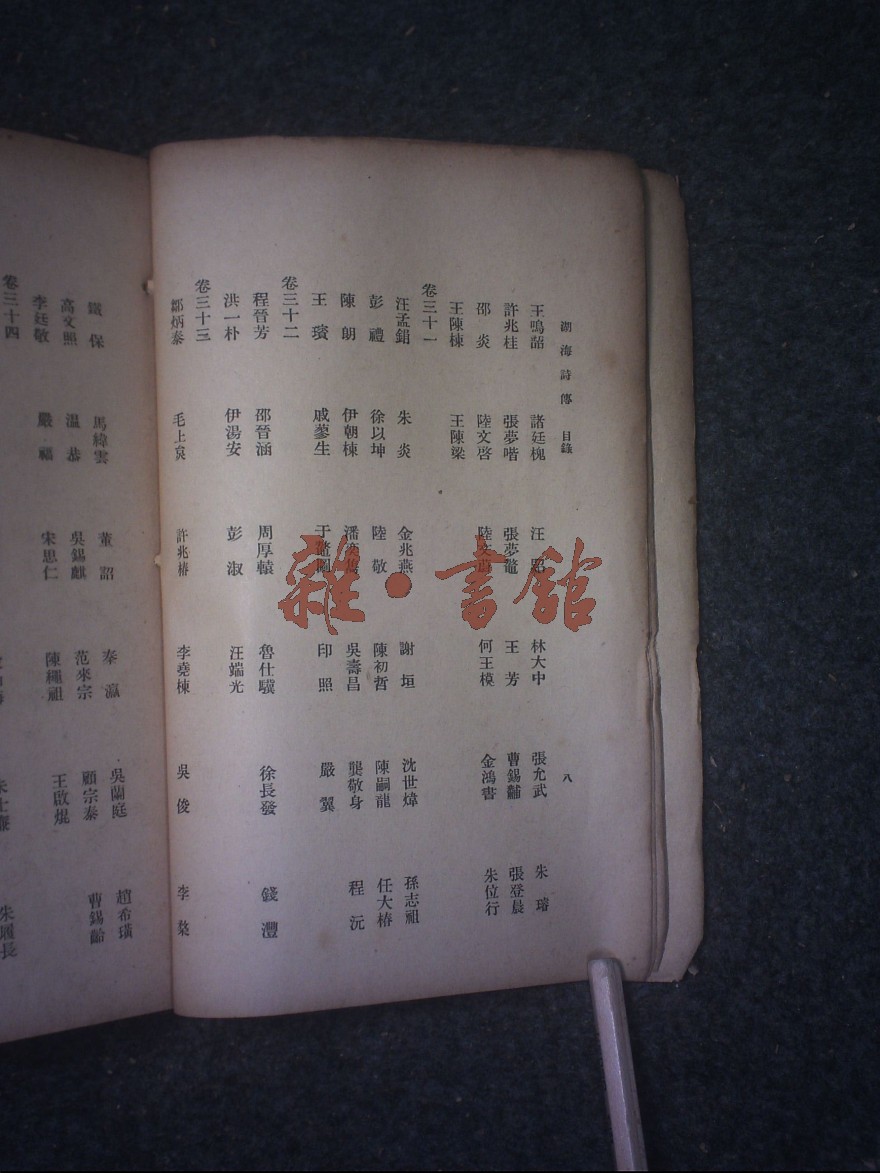 湖海詩傳 目錄 八
王鳴韶 諸廷槐 汪 照 林大中 張允武 朱 㻞
許兆桂 張夢喈 張夢鼇 王 芳 曹錫黼 張登晨
邵 炎 陸文啓 何王模 金鴻書 朱位行
王陳棟 王陳梁
卷三十一
汪孟鋗 朱 炎 金兆燕 謝 垣 沈世煒 孫志祖
彭 禮 徐以坤 陸 敬 陳初哲 陳嗣龍 任大椿
陳 朗 伊朝棟 潘奕雋 吳壽昌 龔敬身 程 沅
王 璸 戚蓼生 于鼇圖 印 照 嚴 翼
卷三十二
程晉芳 邵晉涵 周厚轅 魯仕驥 徐長發 錢 灃
洪一朴 伊湯安 彭 淑 汪端光
卷三十三
鄒炳泰 毛上炱 許兆椿 李堯棟 吳 俊 李 棨
鐵 保 馬緯雲 董 詔 秦 瀛 吳蘭庭 趙希璜
高文照 溫 恭 吳錫麒 范來宗 顧宗泰 曹錫齡
李廷敬 嚴 福 宋思仁 陳繩祖 王啟焜
卷三十四
朱履長
雜·書館